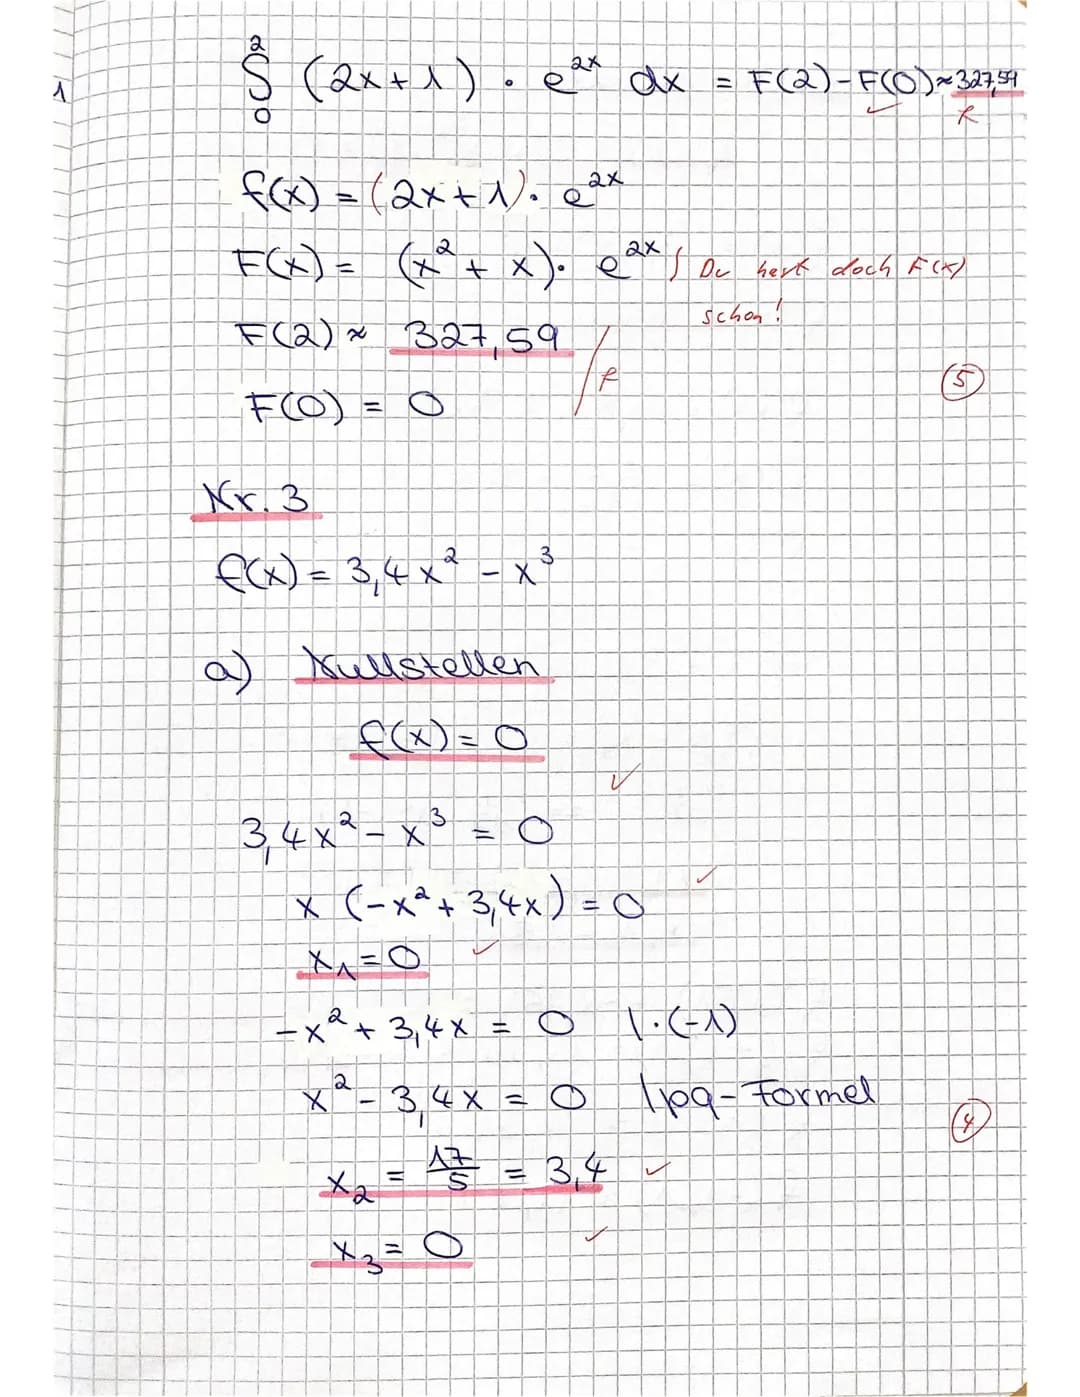 1
2
∫ (2x+1) · e^2x dx = F(2)-F(0)≈327,59
0
f
f(x) = (2x+1) · e^2x
F(x) = (x^2 + x) · e^2x ∫ Du hast doch F(x)
schon!
F(2) ≈ 327,59
f
5
F(0) = 0
Nr. 3
f(x) = 3,4x^2 - x^3
a) Nullstellen
f(x) = 0
✓
3,4x^2 - x^3 = 0
x (-x^2 + 3,4x) = 0 ✓
x1 = 0 ✓
-x^2 + 3,4x = 0 | · (-1)
x^2 - 3,4x = 0 | pq-Formel
4
x2 = 17/5 = 3,4 ✓
x3 = 0 ✓